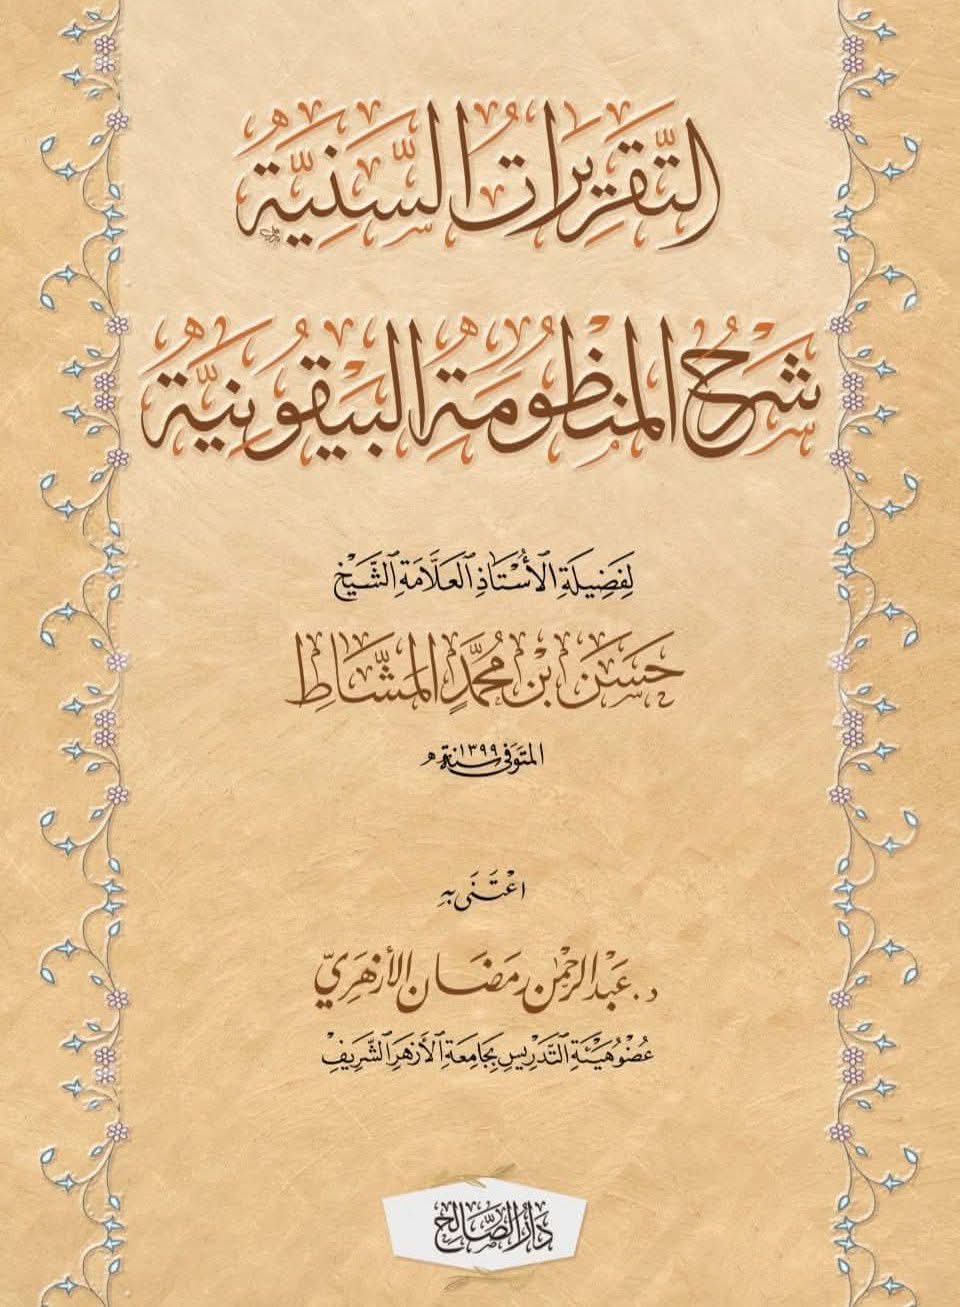 التَّقْرِيرَاتُ السَّنِيَّةُ
شَرْحُ الْمَنْظُومَةِ الْبَيْقُونِيَّةِ
لِفَضِيلَةِ الْأُسْتَاذِ الْعَلَّامَةِ الشَّيْخِ
حَسَنِ بْنِ مُحَمَّدٍ الْمَشَّاطِ
المتوفى سنة ١٣٩٩ هـ
اعْتَنَى بِهِ
د. عَبْدُ الرَّحْمٰنِ رَمَضَانَ الْأَزْهَرِيّ
عُضْوُ هَيْئَةِ التَّدْرِيسِ بِجَامِعَةِ الْأَزْهَرِ الشَّرِيفِ
دَارُ الصَّالِحِ